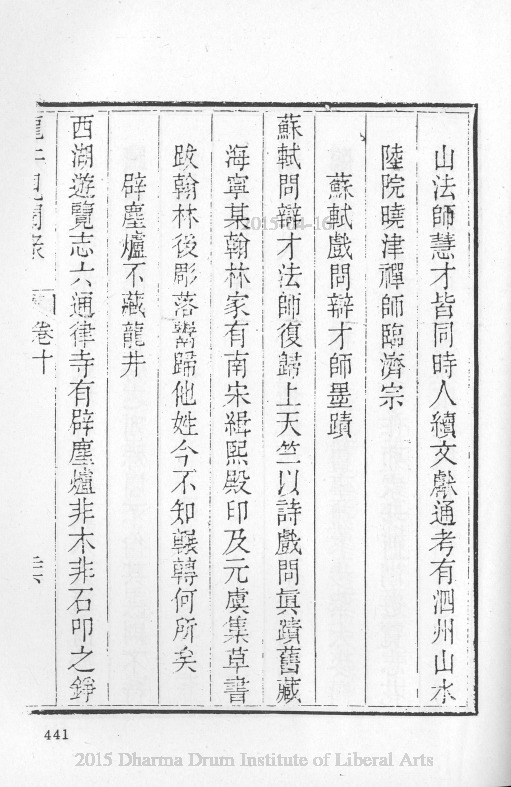 山法師慧才皆同時人續文獻通考有泗州山水
陸院曉津禪師臨濟宗
蘇軾戲問辯才師墨蹟
蘇軾問辯才法師復歸上天竺以詩戲問眞蹟舊藏
海寧某翰林家有南宋緝熙殿印及元虞集草書
跋翰林後彫落鬻歸他姓今不知輾轉何所矣
辟塵爐不藏龍井
西湖遊覽志六通律寺有辟塵爐非木非石叩之錚
龍井見聞錄 卷十
441
2015-04-10
2015 Dharma Drum Institute of Liberal Arts